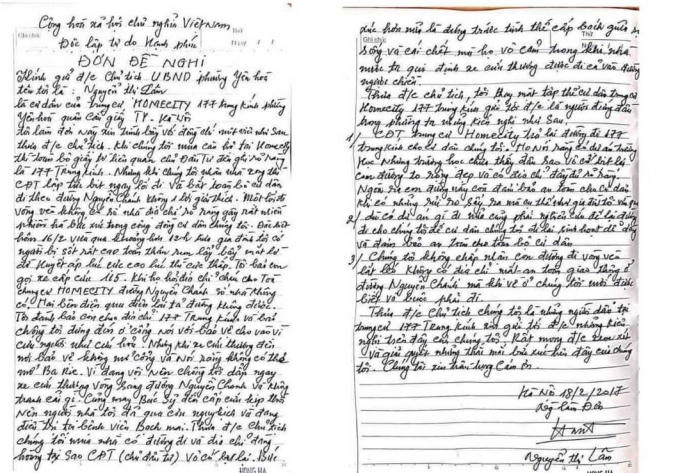 Cộng hoà xã hội chủ nghĩa Việt NAM
Độc lập tự do Hạnh phúc
ĐƠN ĐỀ NGHỊ
Kính gửi đ/c Chủ tịch UBND phường Yên hoà
tên tôi là: Nguyễn Thị Lân
là cư dân của chung cư HOMECITY 177 Trung Kính phường
Yên hoà quận Cầu giấy TP. Hà Nội
tôi làm đơn này xin trình bày với đồng chí một việc như sau
thưa đ/c Chủ tịch. Khi chúng tôi mua căn hộ tại Homecity
thì toàn bộ giấy tờ liên quan chủ Đầu Tư đều ghi rõ ràng
là 177 Trung Kính. Nhưng khi chúng tôi nhận nhà xong thì
CĐT lập tức bịt ngay lối đi và bắt toàn bộ cư dân
đi theo đường Nguyễn Chánh không 1 lời giải thích. Một lối đi
vòng vèo không địa chỉ rõ ràng gây rất nhiều
phiền hà bức xúc trong cộng đồng cư dân chúng tôi. Đặc biệt
hôm 16/2 vừa qua khoảng hơn 12h gia đình tôi có
người bị sốt rét cao toàn thân run lẩy bẩy mặt
đỏ huyết áp
gọi xe cấp cứu 115. Khi họ hỏi địa chỉ
chung cư HOMECITY đường Nguyễn Chánh số nhà không
có,
Tôi đành bảo con cho địa chỉ 177 Trung Kính và bảo
chồng tôi đứng đón ở cổng nói với bảo vệ cho vào vì
cứu người như cứu hoả. Nhưng khi xe cứu thương đến
nơi bảo vệ không mở cổng và nói rằng không có thẻ
mở Ba Rie. Vì đang vội nên chồng tôi dẫn ngay
xe cứu thương vòng sang đường Nguyễn Chánh và không
tranh cãi gì. Cũng may Bác Sỹ đến cấp cứu kịp thời
nên người nhà tôi đã qua cơn nguy kịch và đang
điều trị tại bệnh viện Bạch mai. Thưa đ/c Chủ tịch
chúng tôi mua nhà có đường đi và địa chỉ đàng
hoàng tại sao CĐT (chủ đầu tư) vô cớ bịt lại.
Ghi chú
Thứ
Ngày
xúc hơn nữa là đứng trước tình thế cấp bách giữa
sống và cái chết mà họ vô cảm trong khi nhà
nước ta qui định xe cứu thương được đi cả vào đường
ngược chiều.
Thưa đ/c Chủ tịch, tôi thay mặt tập thể cư dân trong cư
Homecity 177 Trung Kính gửi tới đ/c là người đứng đầu
trong phường ta những kiến nghị như sau.
1/ CĐT chung cư Homecity trả lại đường đi 177
Trung Kính cho cư dân chúng tôi. Họ nói rằng có dự án trường
Học nhưng trường học chưa thấy đâu sao vô cớ bịt lại
con đường to rộng đẹp và có địa chỉ đầy đủ rõ ràng.
Ngoài ra con đường này còn đảm bảo an toàn cho cư dân
khi có những rủi ro xảy ra mà cụ thể như gia đình tôi vừa qua
2/ dù có dự án gì đi nữa cũng phải nghiên cứu để lại đường
đi cho chúng tôi để cư dân chúng tôi đi lại sinh hoạt dễ dàng
và đảm bảo an toàn cho toàn bộ cư dân
3/ Chúng tôi không chấp nhận con đường đi vòng vèo
bắt bẻo không có địa chỉ mất an toàn giao thông ở
đường Nguyễn Chánh mà khi về ở chúng tôi mới được
biết và buộc phải đi.
Thưa đ/c Chủ tịch chúng tôi là những người dân tại
trung cư 177 Trung Kính xin gửi tới đ/c những kiến
nghị trên đây của chúng tôi. Rất mong đ/c xem xét
và giải quyết những thắc mắc bức xúc trên đây của chúng
tôi. Chúng tôi xin trân trọng Cảm ơn.
Hà Nội 18/2/2017
Người làm Đơn
Nguyễn Thị Lân
HỒNG HÀ